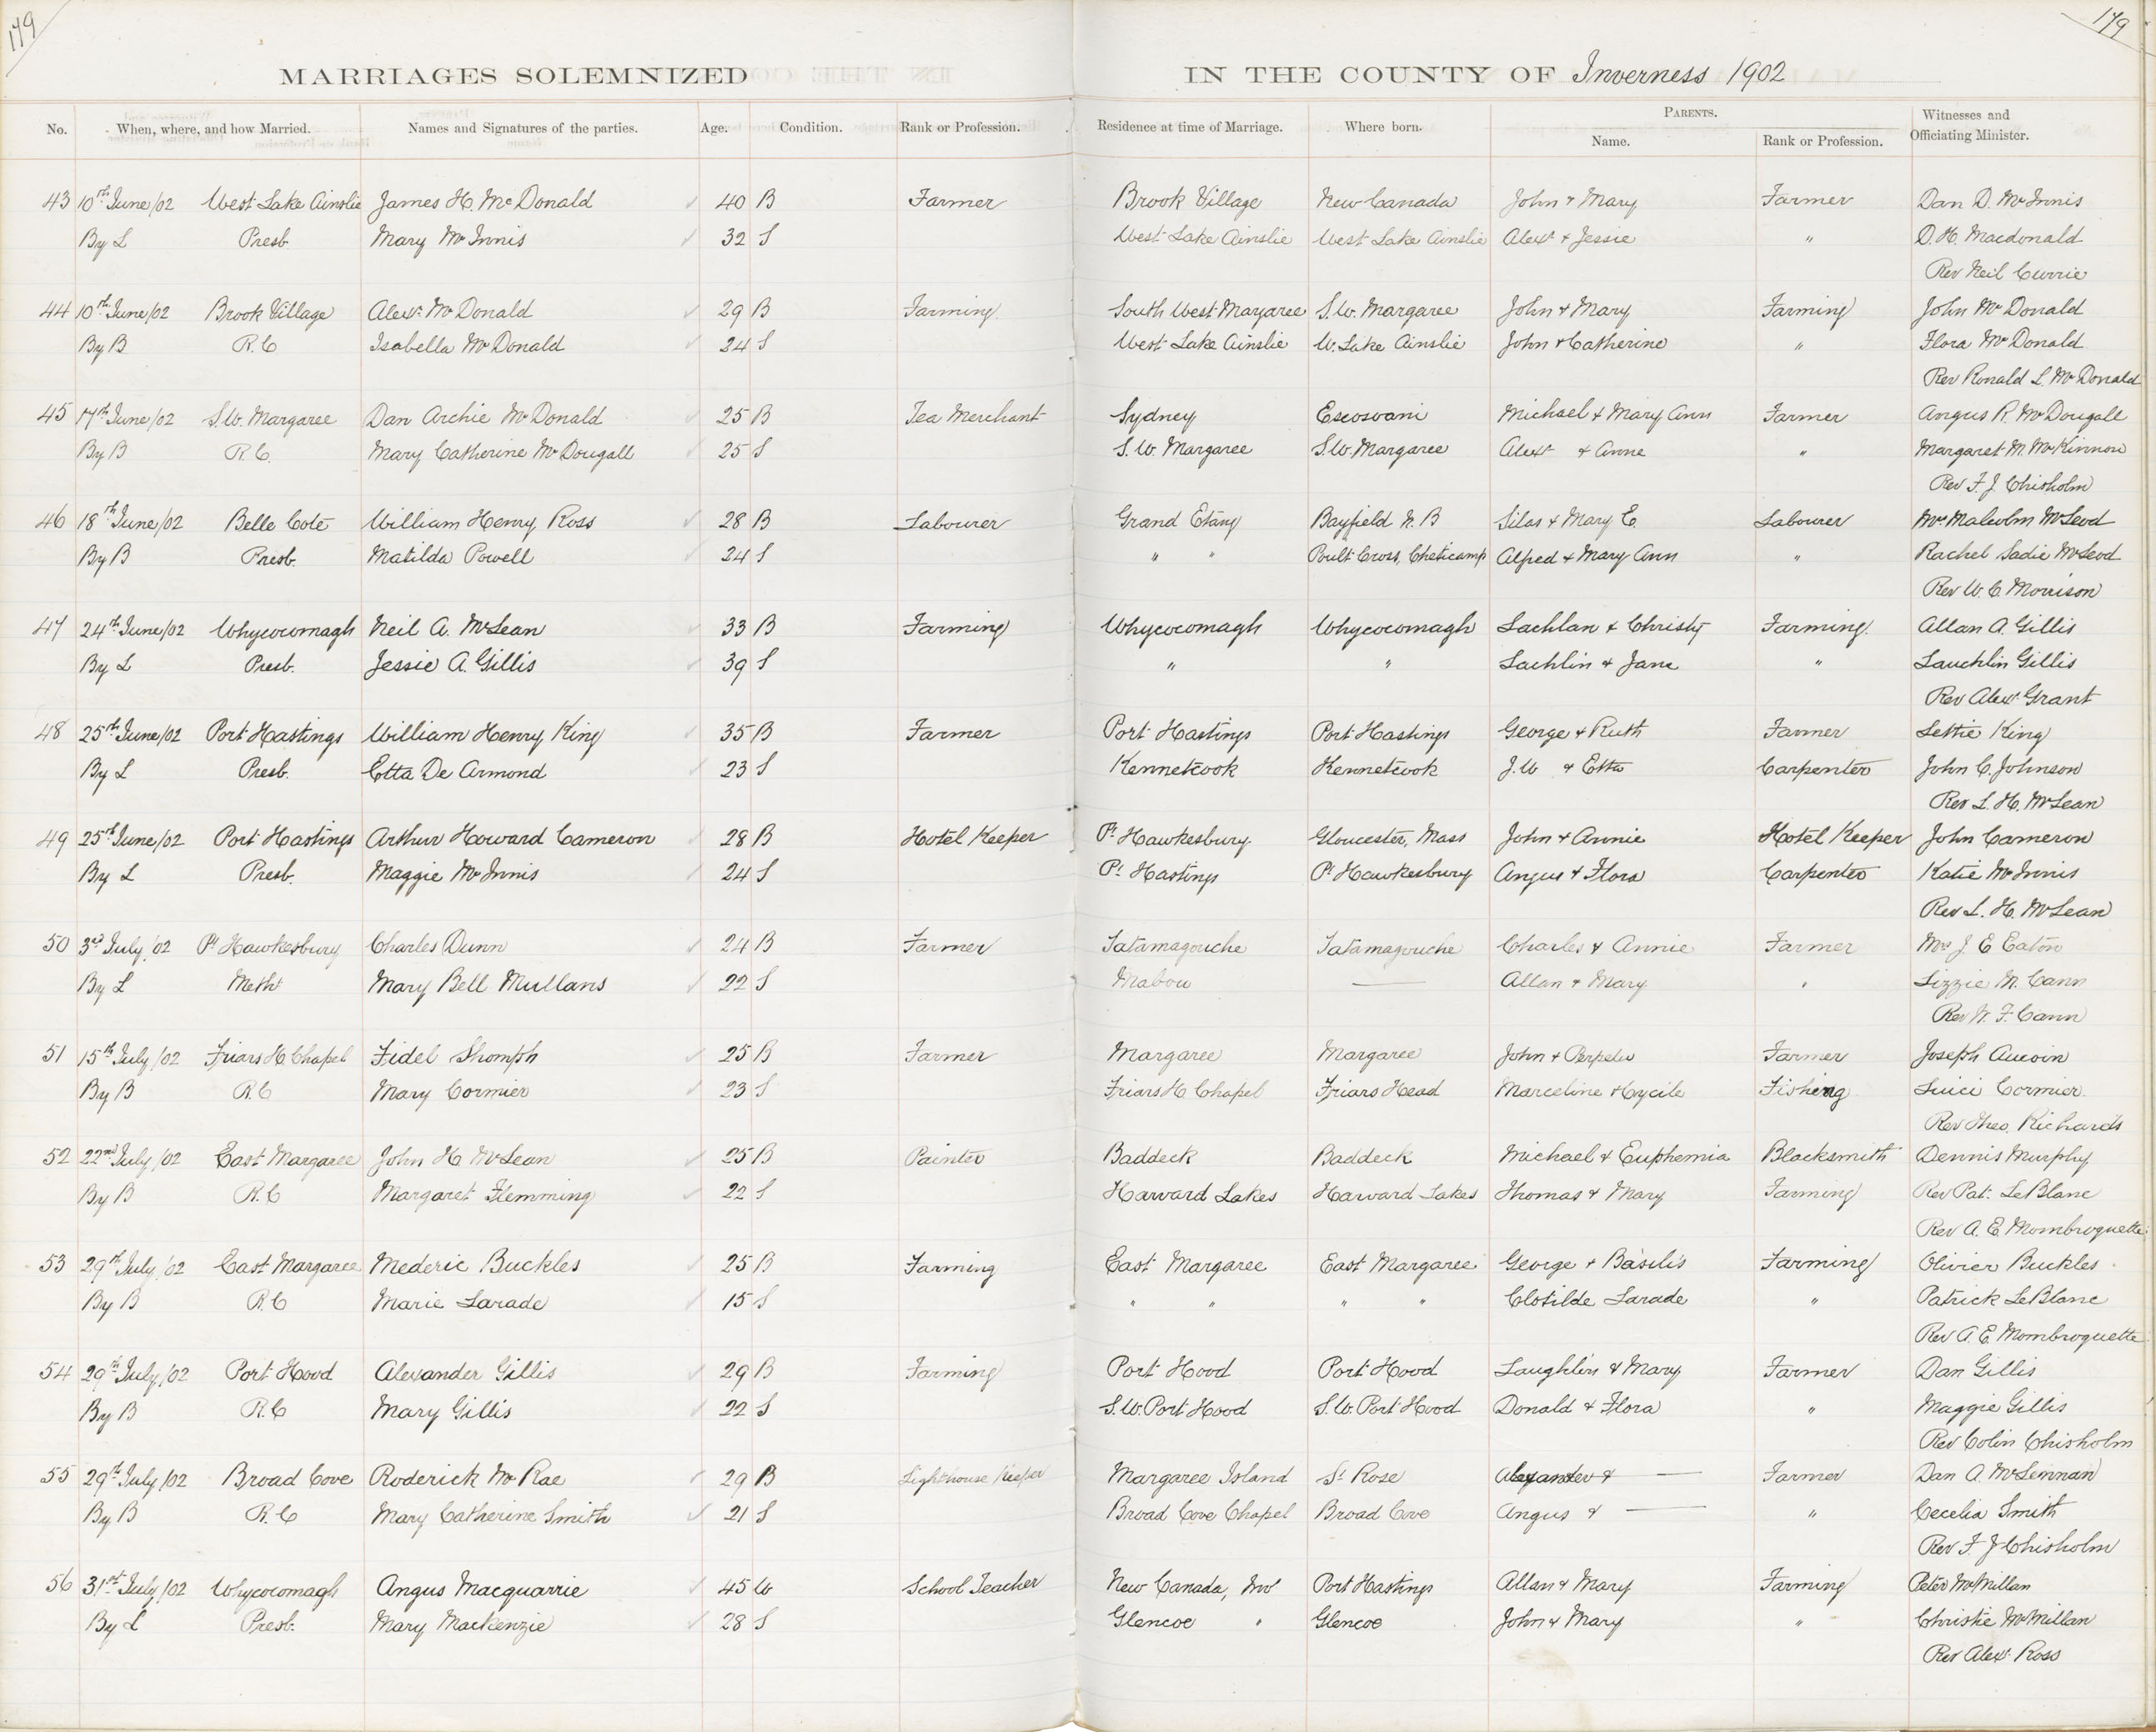 179
179
MARRIAGES SOLEMNIZED IN THE COUNTY OF Inverness 1902
No. When, where, and how Married. Names and Signatures of the parties. Age. Condition. Rank or Profession. Residence at time of Marriage. Where born. PARENTS. Name. Rank or Profession. Witnesses and Officiating Minister.
43 10th June/02 West Lake Ainslie James H. McDonald 40 B Farmer Brook Village New Canada John & Mary Farmer Dan D. McInnis
By L Presb. Mary McInnis 32 S West Lake Ainslie West Lake Ainslie Alexr & Jessie " D. H. Macdonald
Rev Neil Currie
44 10th June/02 Brook Village Alexr McDonald 29 B Farming South West Margaree S.W. Margaree John & Mary Farming John McDonald
By B R.C Isabella McDonald 24 S West Lake Ainslie W. Lake Ainslie John & Catherine " Flora McDonald
Rev Ronald L. McDonald
45 17th June/02 S.W. Margaree Dan Archie McDonald 25 B Tea Merchant Sydney Escosoani Michael & Mary Ann Farmer Angus R. McDougall
By B R.C. Mary Catherine McDougall 25 S S.W. Margaree S.W. Margaree Alexr & Anne " Margaret M. McKinnon
Rev F. J. Chisholm
46 18th June/02 Belle Cote William Henry Ross 28 B Labourer Grand Etang Bayfield N.B Silas & Mary E. Labourer Mr. Malcolm McLeod
By B Presb. Matilda Powell 24 S " " Poult Cross, Cheticamp Alfred & Mary Ann " Rachel Sadie McLeod
Rev W. C. Morrison
47 24th June/02 Whycocomagh Neil A. McLean 33 B Farming Whycocomagh Whycocomagh Lachlan & Christy Farming Allan A. Gillis
By L Presb. Jessie A. Gillis 39 S " " Lachlin & Jane " Lauchlin Gillis
Rev Alexr Grant
48 25th June/02 Port Hastings William Henry King 35 B Farmer Port Hastings Port Hastings George & Ruth Farmer Lettie King
By L Presb. Etta De Armond 23 S Kennetcook Kennetcook J.W & Etta Carpenter John C. Johnson
Rev L. H. McLean
49 25th June/02 Port Hastings Arthur Howard Cameron 28 B Hotel Keeper Pt Hawkesbury Gloucester, Mass John & Annie Hotel Keeper John Cameron
By L Presb. Maggie McInnis 24 S Pt Hastings Pt Hawkesbury Angus & Flora Carpenter Katie McInnis
Rev L. H. McLean
50 3rd July '02 Pt Hawkesbury Charles Dunn 24 B Farmer Tatamagouche Tatamagouche Charles & Annie Farmer Mrs J. E Eaton
By L Metht Mary Bell Mullans 22 S Mabou — Allan & Mary " Lizzie M. Cann
Rev W. F. Cann
51 15th July/02 Friars H Chapel Fidel Shomph 25 B Farmer Margaree Margaree John & Perpetu Farmer Joseph Aucoin
By B R.C Mary Cormier 23 S Friars H Chapel Friars Head Marceline & Cycile Fishing Luici Cormier
Rev Theo. Richards
52 22nd July/02 East Margaree John H McLean 25 B Painter Baddeck Baddeck Michael & Euphemia Blacksmith Dennis Murphy
By B R.C Margaret Flemming 22 S Harvard Lakes Harvard Lakes Thomas & Mary Farming Rev Pat. LeBlanc
Rev A. E. Mombroquette
53 29th July '02 East Margaree Mederic Buckles 25 B Farming East Margaree East Margaree George & Basilis Farming Olivier Buckles
By B R.C Marie Larade 15 S " " " " Clotilde Larade " Patrick LeBlanc
Rev A. E. Mombroquette
54 29th July/02 Port Hood Alexander Gillis 29 B Farming Port Hood Port Hood Laughlin & Mary Farmer Dan Gillis
By B R.C Mary Gillis 22 S S.W. Port Hood S.W. Port Hood Donald & Flora " Maggie Gillis
Rev Colin Chisholm
55 29th July/02 Broad Cove Roderick McRae 29 B Lighthouse Keeper Margaree Island St Rose Alexander & — Farmer Dan A. McLennan
By B R.C Mary Catherine Smith 21 S Broad Cove Chapel Broad Cove Angus & — " Cecelia Smith
Rev F. J Chisholm
56 31st July/02 Whycocomagh Angus Macquarrie 45 W School Teacher New Canada, Inv Port Hastings Allan & Mary Farming Peter McMillan
By L Presb. Mary Mackenzie 28 S Glencoe " Glencoe John & Mary " Christie McMillan
Rev Alexr Ross